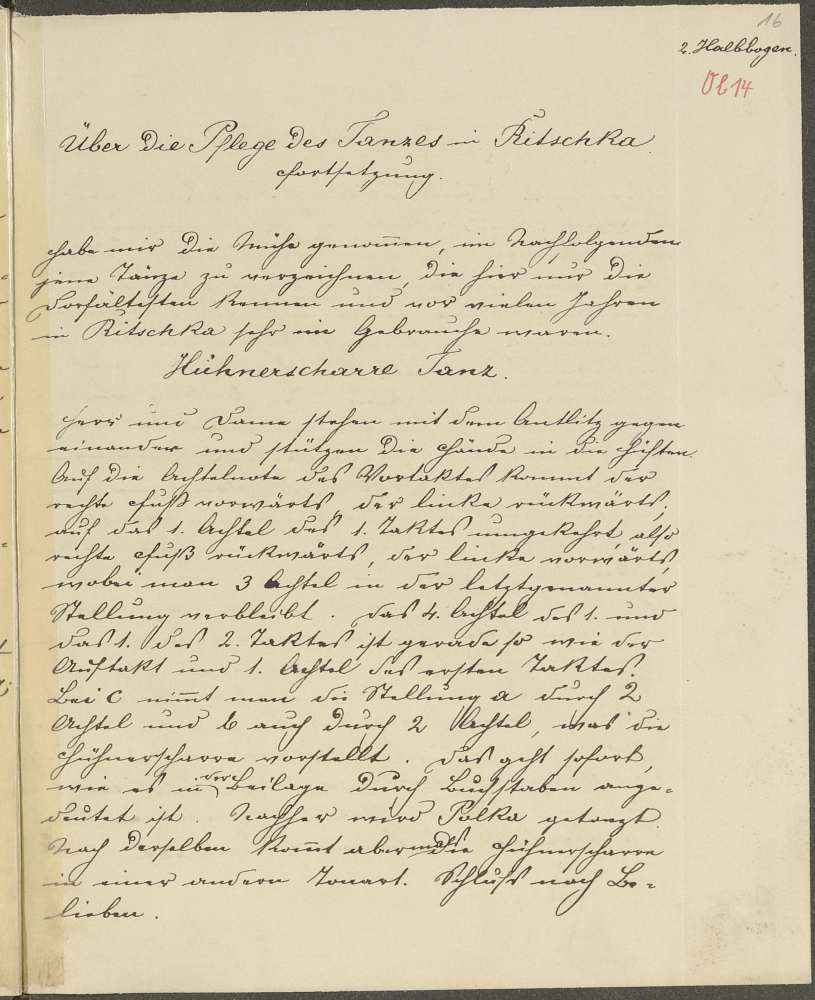 16
2. Halbbogen.
Ob 14
Über die Pflege des Tanzes in Ritschka.
Fortsetzung.
Habe mir die Mühe genommen, im Nachfolgenden
jene Tänze zu verzeichnen, die hier nur die
Dorfältesten kennen und vor vielen Jahren
in Ritschka sehr im Gebrauche waren.
Hühnerscharre Tanz.
Herr und Dame stehen mit dem Antlitz gegen
einander und stützen die Hände in die Hüften.
Auf die Achtelnote des Vortaktes kommt der
rechte Fuß vorwärts, der linke rückwärts;
auf das 1. Achtel des 1. Taktes umgekehrt, also
rechte Fuß rückwärts, der linke vorwärts,
wobei man 3 Achtel in der letztgenannter
Stellung verbleibt. Das 4. Achtel des 1. und
das 1. des 2. Taktes ist gerade so wie der
Auftakt und 1. Achtel des ersten Taktes.
Bei C nimmt man die Stellung a durch 2
Achtel und b auch durch 2 Achtel, was die
Hühnerscharre vorstellt. Das geht sofort,
wie es in der Beilage durch Buchstaben ange=
deutet ist. Nachher wird Polka getanzt.
Nach derselben kommt abermals die Hühnerscharre
in einer andern Tonart. Schluß nach Be=
lieben.